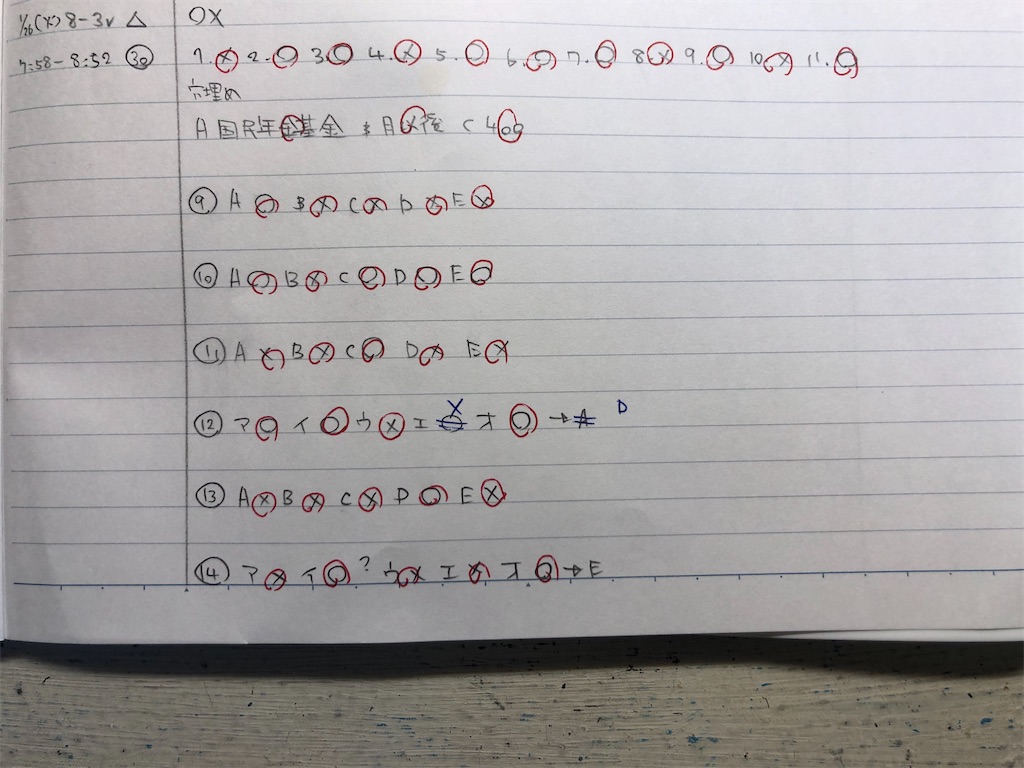 1/26(火) 8-3v △
OX
7:58-8:52 ㉚
1. × 2. ○ 3. ○ 4. × 5. ○ 6. ○ 7. ○ 8 × 9. ○ 10 × 11. ○
穴埋め
A 国民年金基金 B 月 後 C 400
⑨ A ○ B × C × D × E ×
⑩ A ○ B × C ○ D ○ E ○
⑪ A × B × C ○ D × E ×
⑫ ア ○ イ ○ ウ × エ × オ ○ → D
⑬ A × B × C × D ○ E ×
⑭ ア × イ ○ ? ウ × エ × オ ○ → E